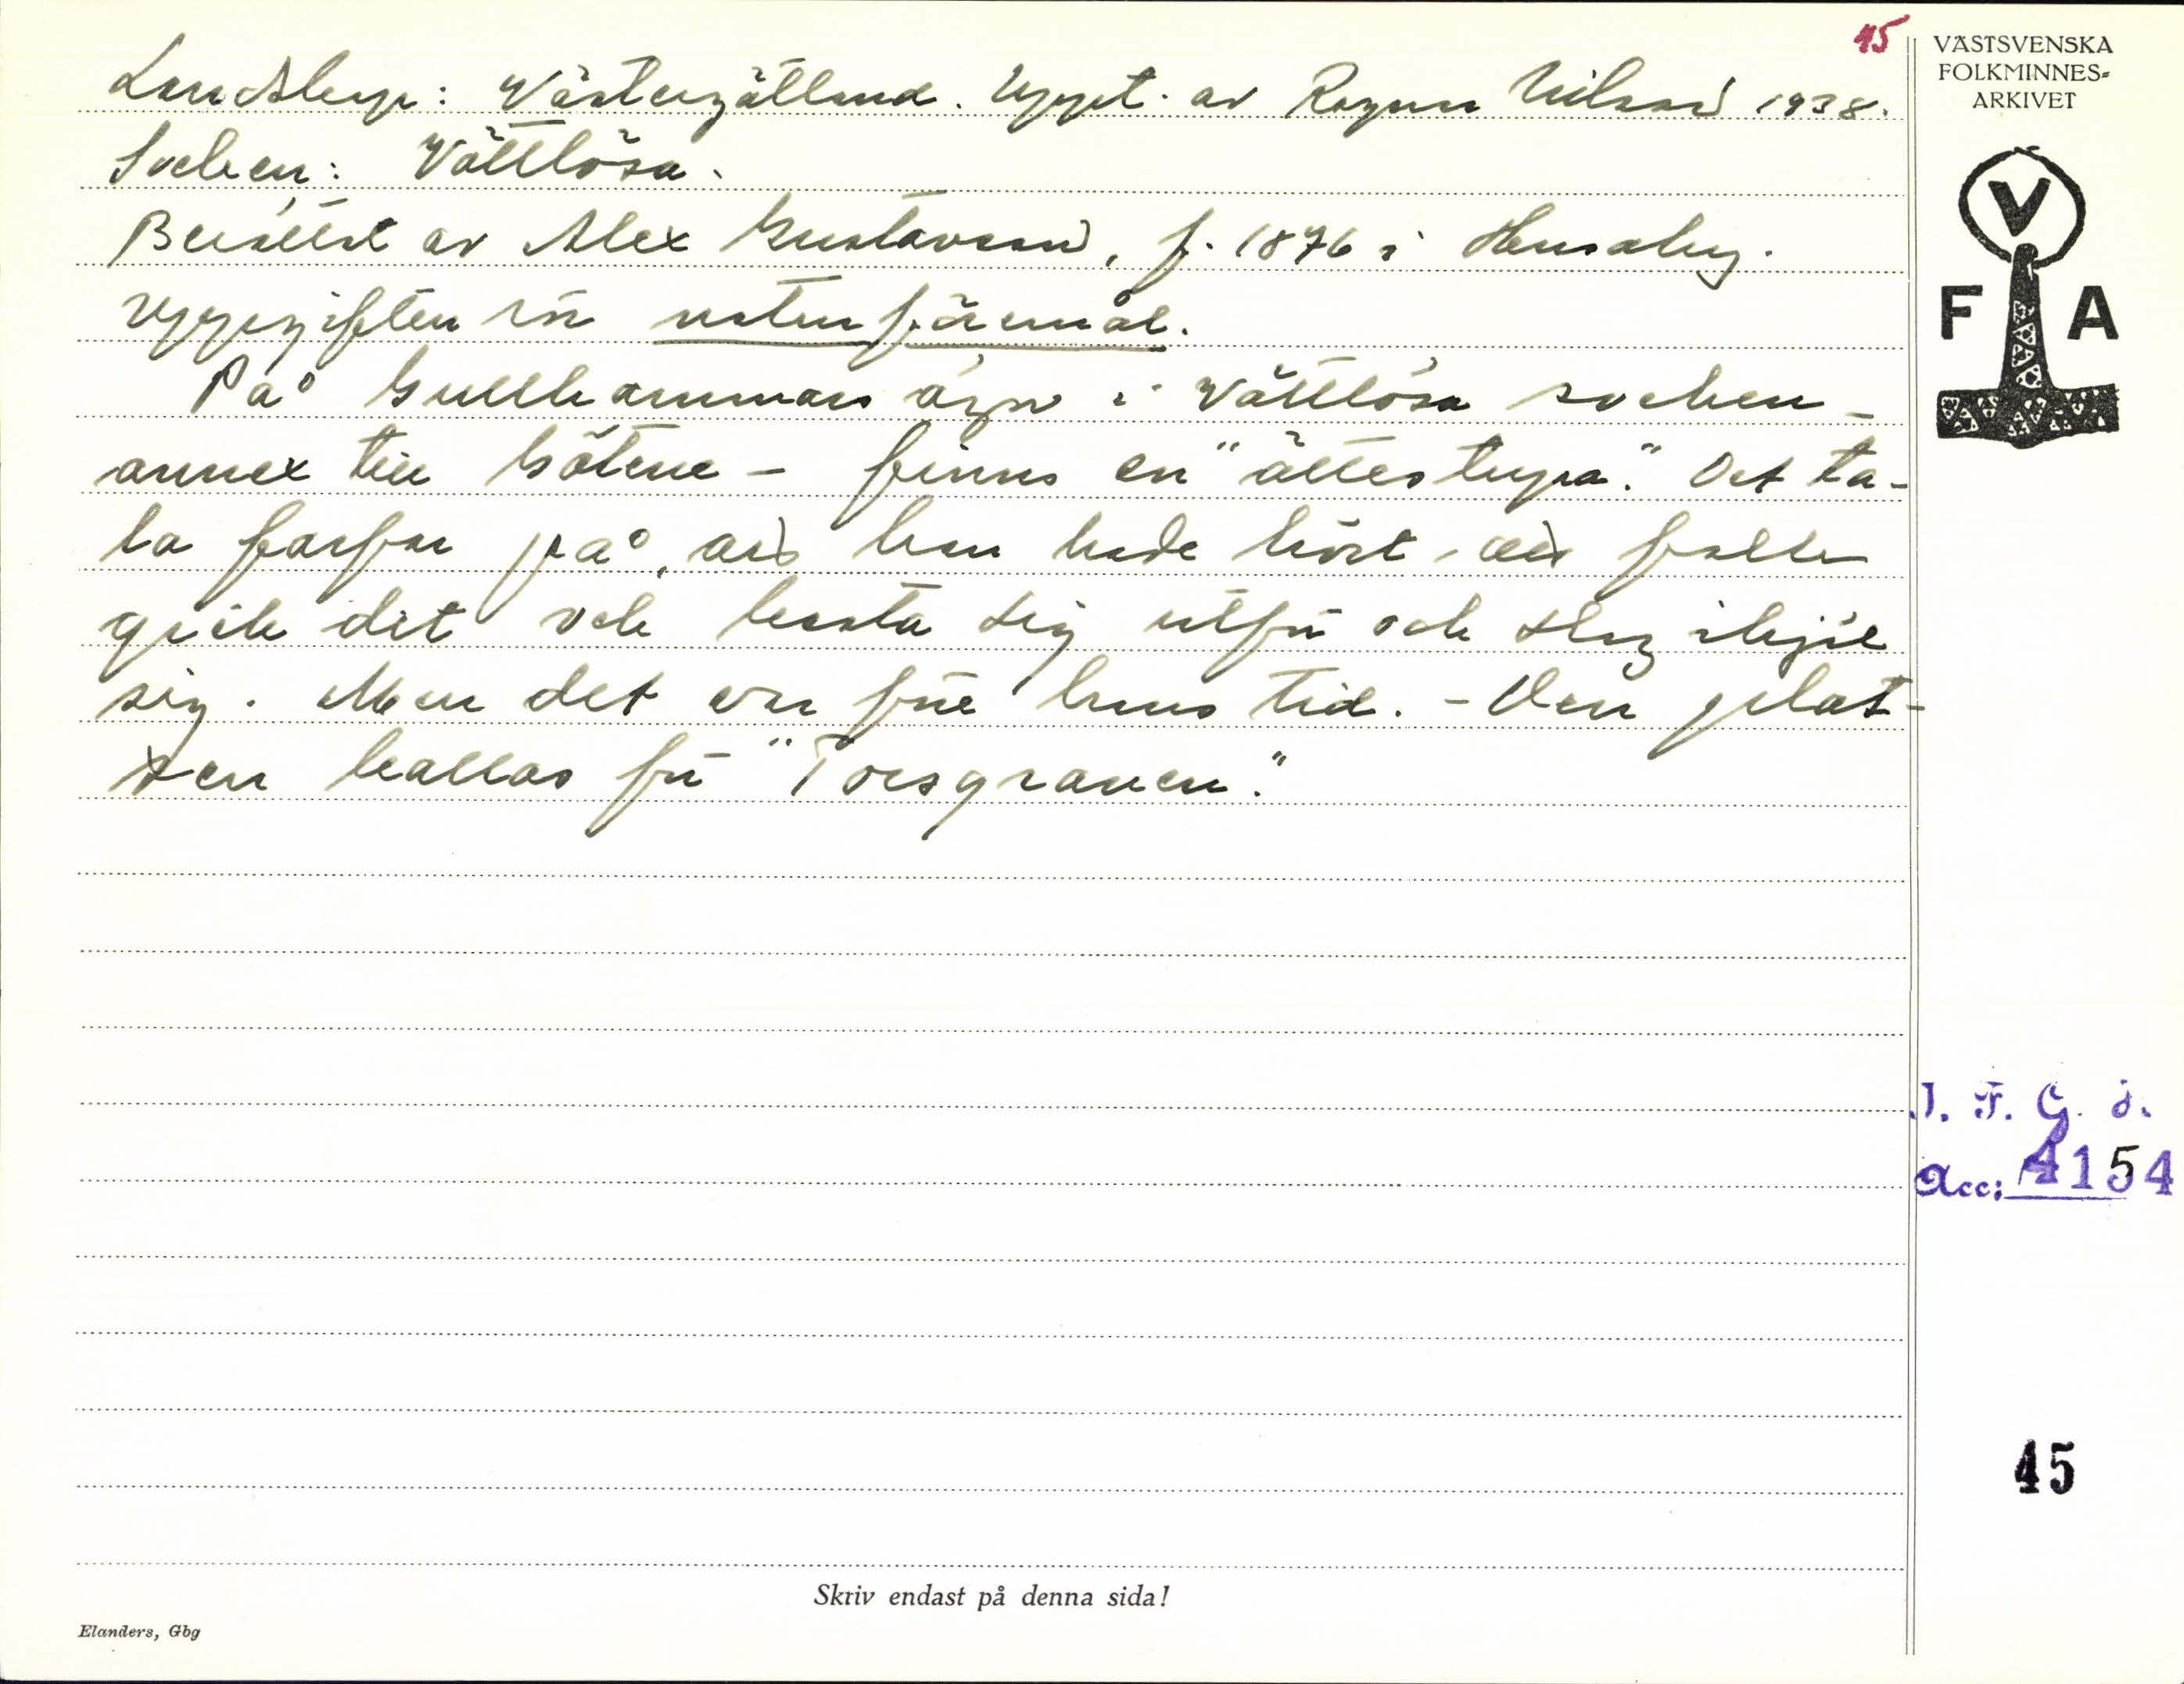 45
Landskap: Västergötland. Uppt. av Ragnar Nilsson 1938.
Socken: Vättlösa.
Berättat av Alex Gustavsson, f. 1876 i Husaby.
Uppgiften rör naturföremål.
På Gullhammars ägor i Vättlösa socken –
annex till Götene – finns en "ättestupa". Det ta-
la farfar på, att han hade hört, att folk
gick dit och kasta sig utför och slog ihjäl
sig. Men det var före hans tid. – Den plat-
sen kallas för "Torsgraven."
Skriv endast på denna sida!
Elanders, Gbg
VÄSTSVENSKA
FOLKMINNES=
ARKIVET
V
F A
I. F. G. H.
Acc: 4154
45